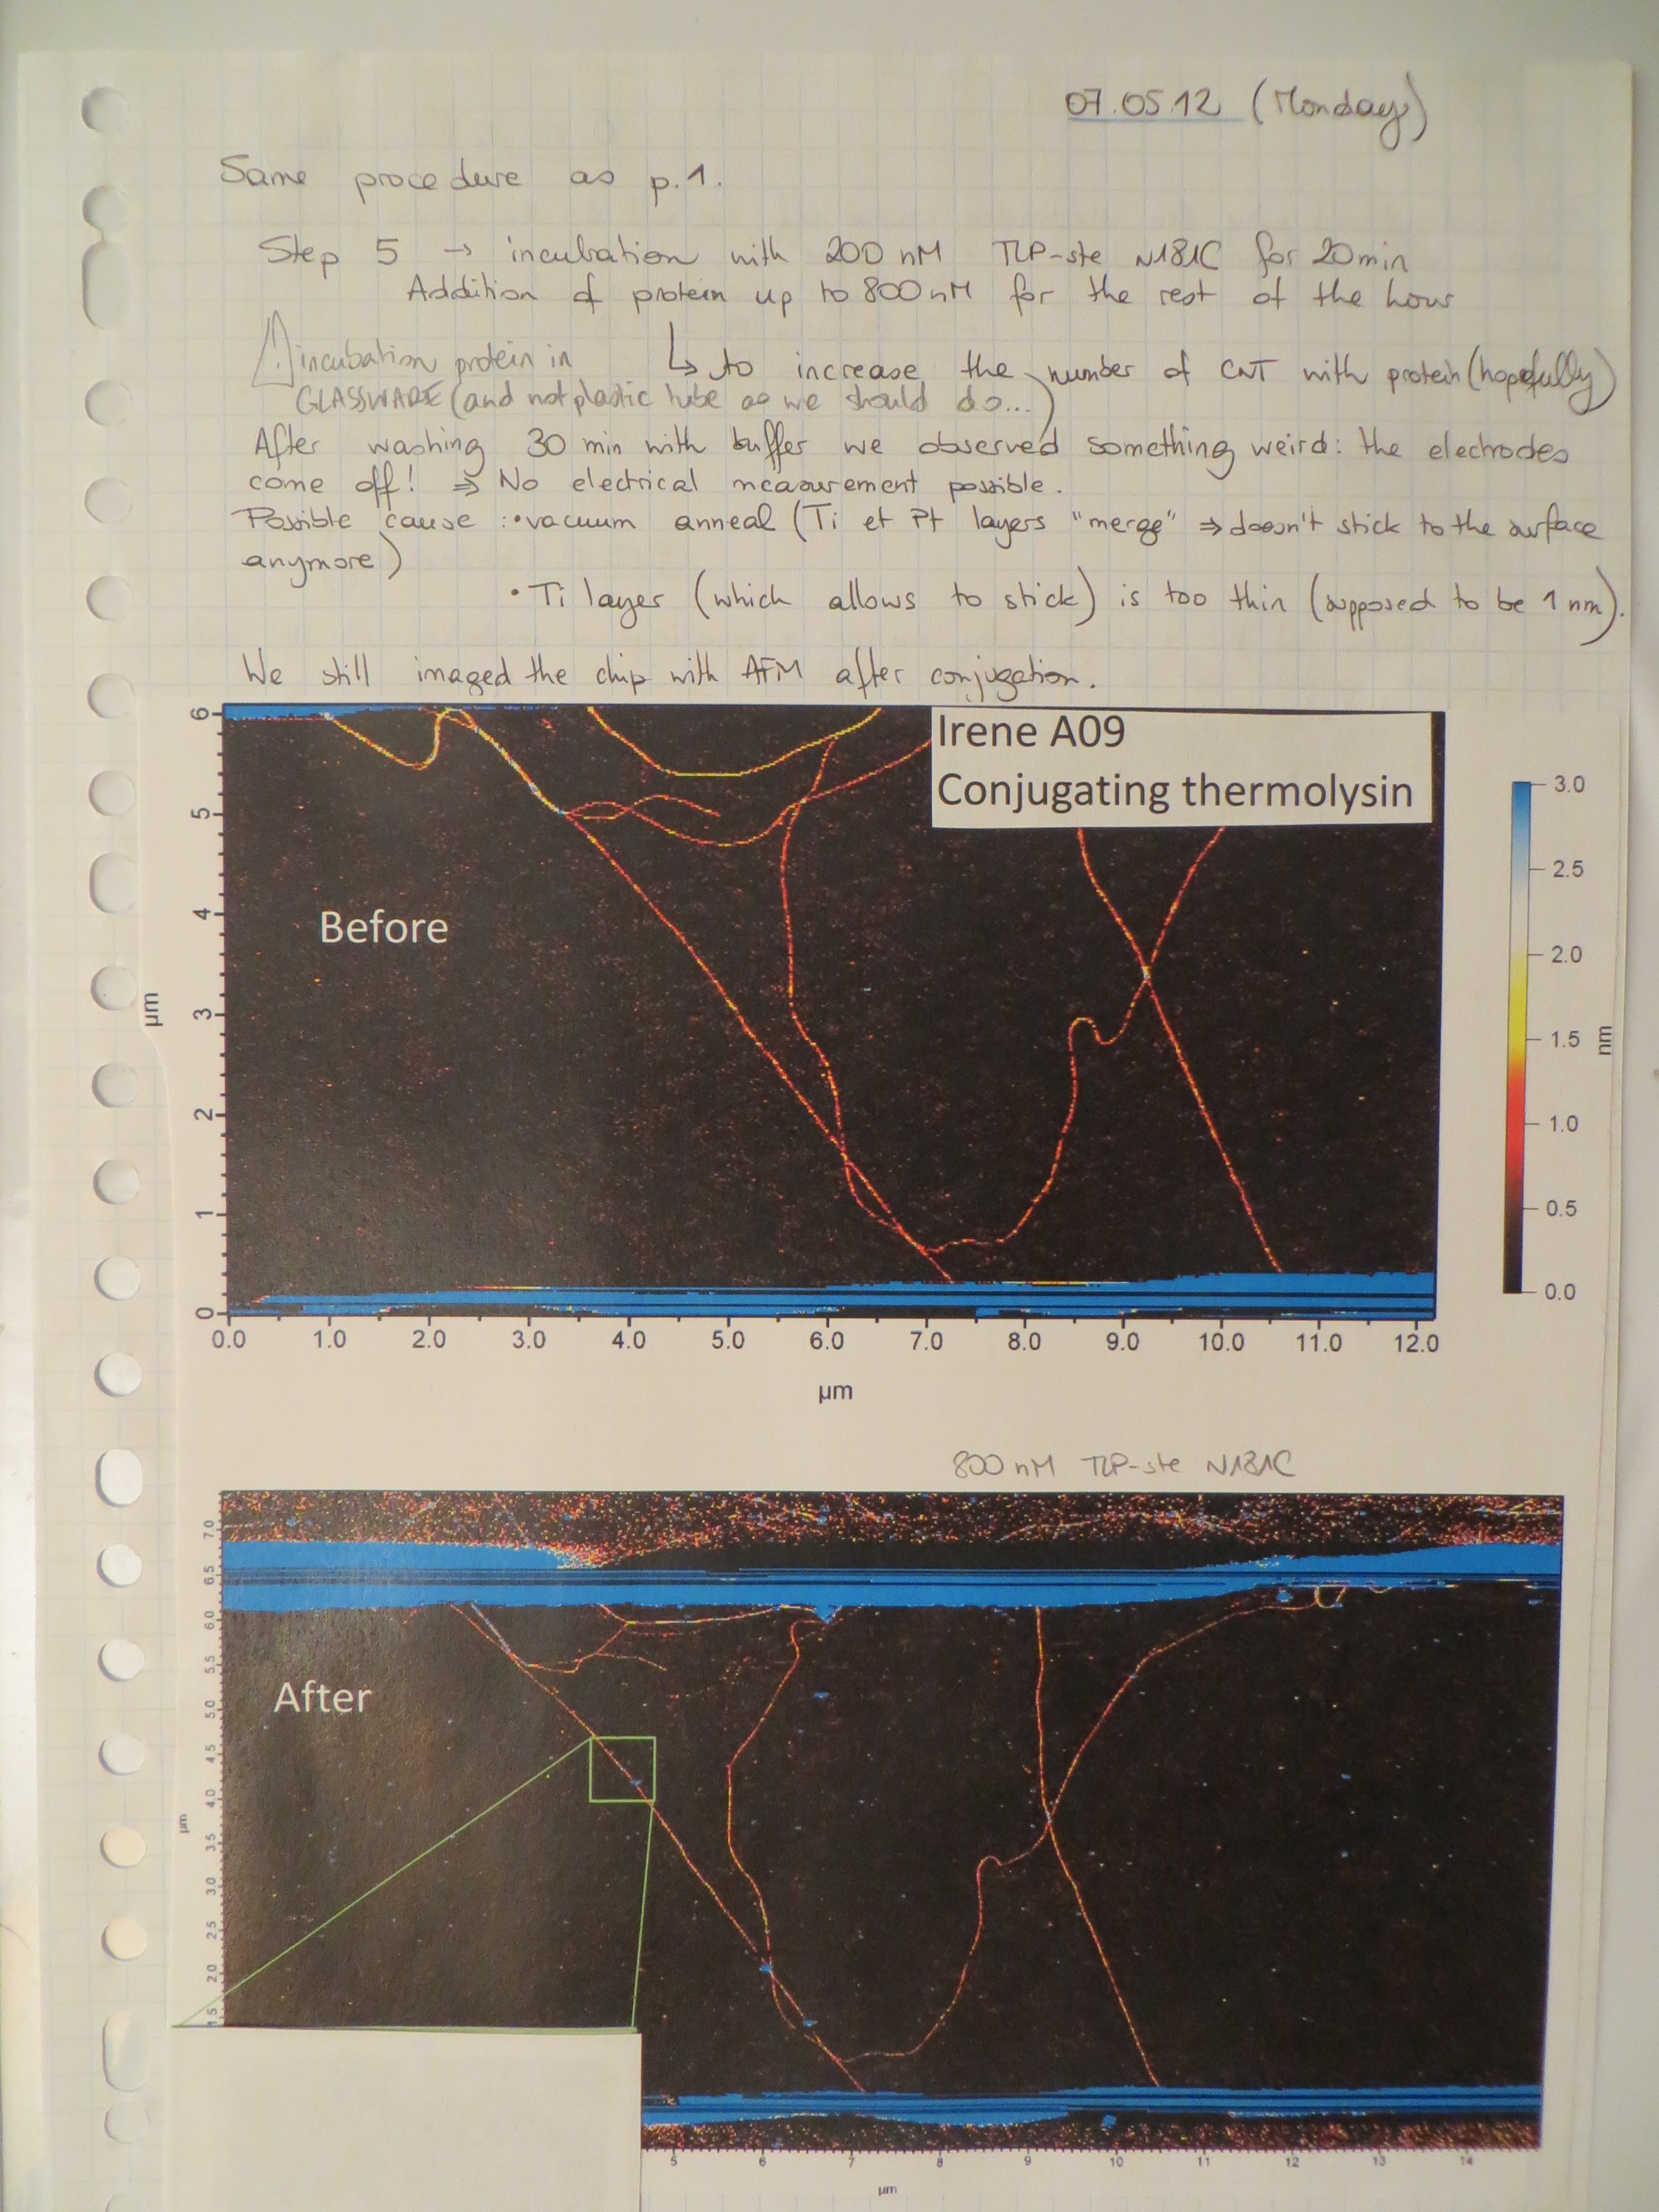 07.05.12 (Monday)
Same procedure as p.1.
Step 5 → incubation with 200 nM TLP-ste N181C for 20min
Addition of protein up to 800 nM for the rest of the hour
↳ to increase the number of CNT with protein (hopefully)
⚠ incubation protein in
GLASSWARE (and not plastic tube as we should do...)
After washing 30 min with buffer we observed something weird: the electrodes
come off! ⇒ No electrical measurement possible.
Possible cause : • vacuum anneal (Ti et Pt layers "merge" ⇒ doesn't stick to the surface
anymore)
• Ti layer (which allows to stick) is too thin (supposed to be 1 nm).
We still imaged the chip with AFM after conjugation.
Irene A09
Conjugating thermolysin
Before
6
5
4
3
2
1
0
µm
0.0 1.0 2.0 3.0 4.0 5.0 6.0 7.0 8.0 9.0 10.0 11.0 12.0
µm
3.0
2.5
2.0
1.5
1.0
0.5
0.0
nm
800 nM TLP-ste N181C
After
7.0
6.5
6.0
5.5
5.0
4.5
4.0
3.5
3.0
2.5
2.0
1.5
µm
5 6 7 8 9 10 11 12 13 14
µm